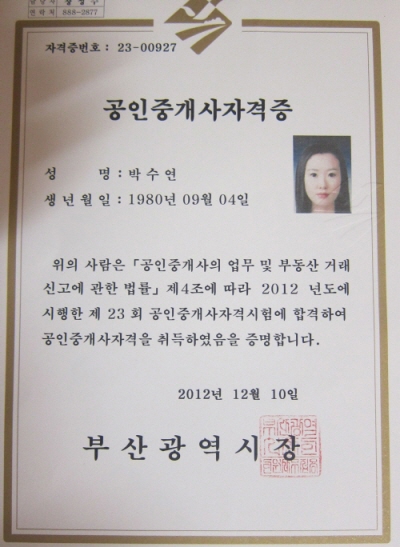 연락처 888-2877
자격증번호 : 23-00927
공인중개사자격증
성 명 : 박수연
생년월일 : 1980년 09월 04일
위의 사람은 「공인중개사의 업무 및 부동산 거래
신고에 관한 법률」 제4조에 따라 2012 년도에
시행한 제 23 회 공인중개사자격시험에 합격하여
공인중개사자격을 취득하였음을 증명합니다.
2012년 12월 10일
부산광역시장